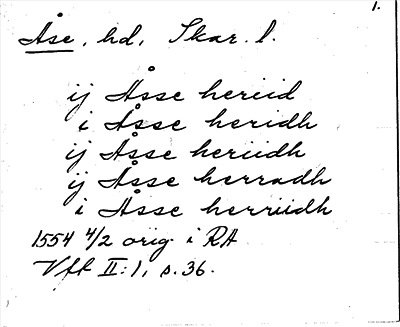 1.
Åse, hd, Skar. l.
ij Åsse heriid
i Åsse heridh
ij Åsse heriidh
ij Åsse herradh
i Åsse herriidh
1554 4/2 orig i RA
Vft II:1, s. 36.